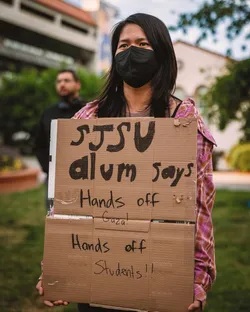 SJSU
alum says
Hands off
Gaza!
Hands off
Students!!